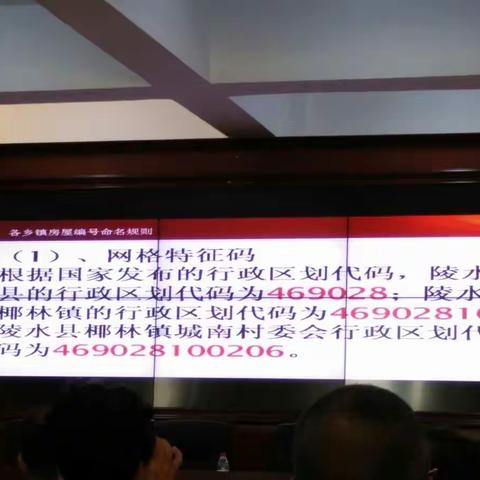 各乡镇房屋编号命名规则
（1）、网格特征码
根据国家发布的行政区划代码，陵水
县的行政区划代码为469028；陵水
椰林镇的行政区划代码为46902810
陵水县椰林镇城南村委会行政区划代
码为469028100206。